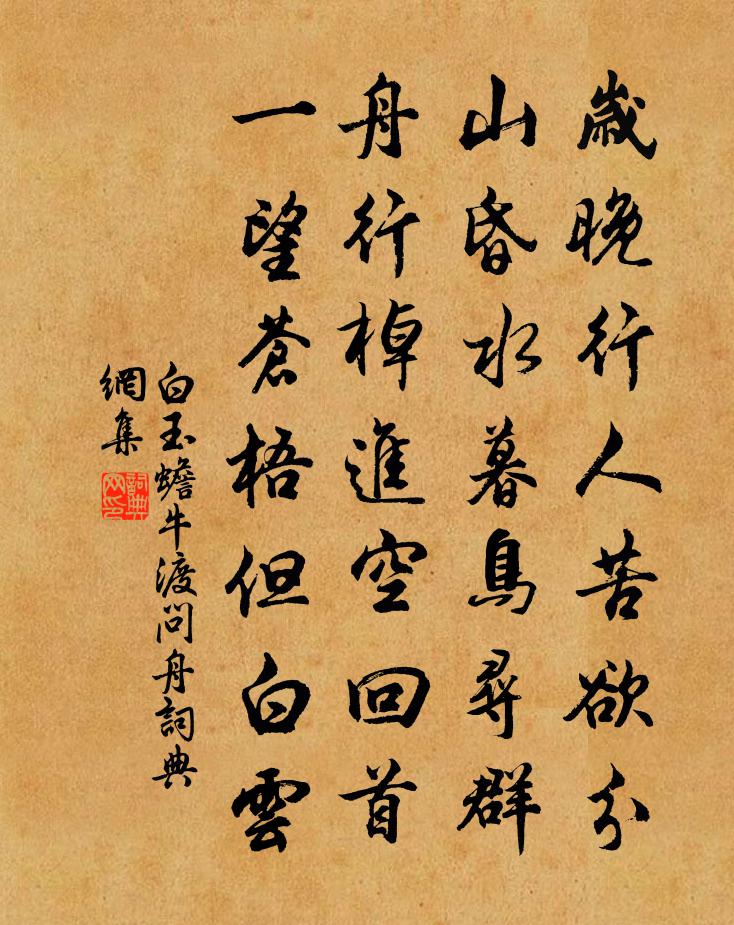 歲晚行人苦欲分
山昏水暮鳥尋群
舟行棹進空回首
一望蒼梧但白雲
白玉蟾牛渡問舟詞典
網集
詞典网印